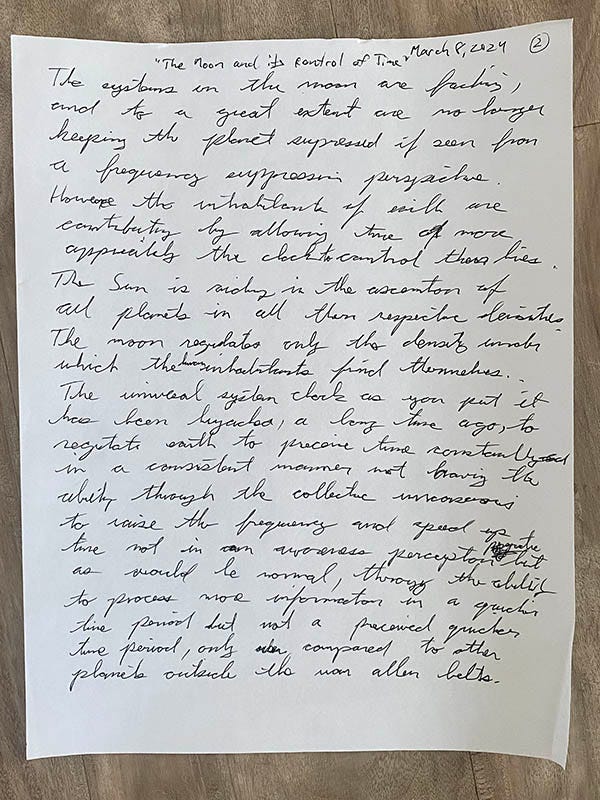 "The Moon and its control of Time" March 8, 2024 ②
The systems in the moon are failing,
and to a great extent are no longer
keeping the planet supressed if seen from
a frequency suppression perspective.
However the inhabitants of earth are
contributing by allowing time or more
appropriately the clock to control there lives.
The Sun is aiding in the ascention of
all planets in all their respective densities.
The moon regulates only the density under
which the human inhabitants find themselves.
The universal system clock as you put it
has been hijacked, a long time ago, to
regulate earth to preceive time constantly and
in a consistent manner not having the
ability through the collective unconscious
to raise the frequency and speed up the
time not in an awareness perception but
as would be normal, through the ability
to process more information in a quicker
time period but not a preceived quicker
time period, only compared to other
planets outside the van allen belts.